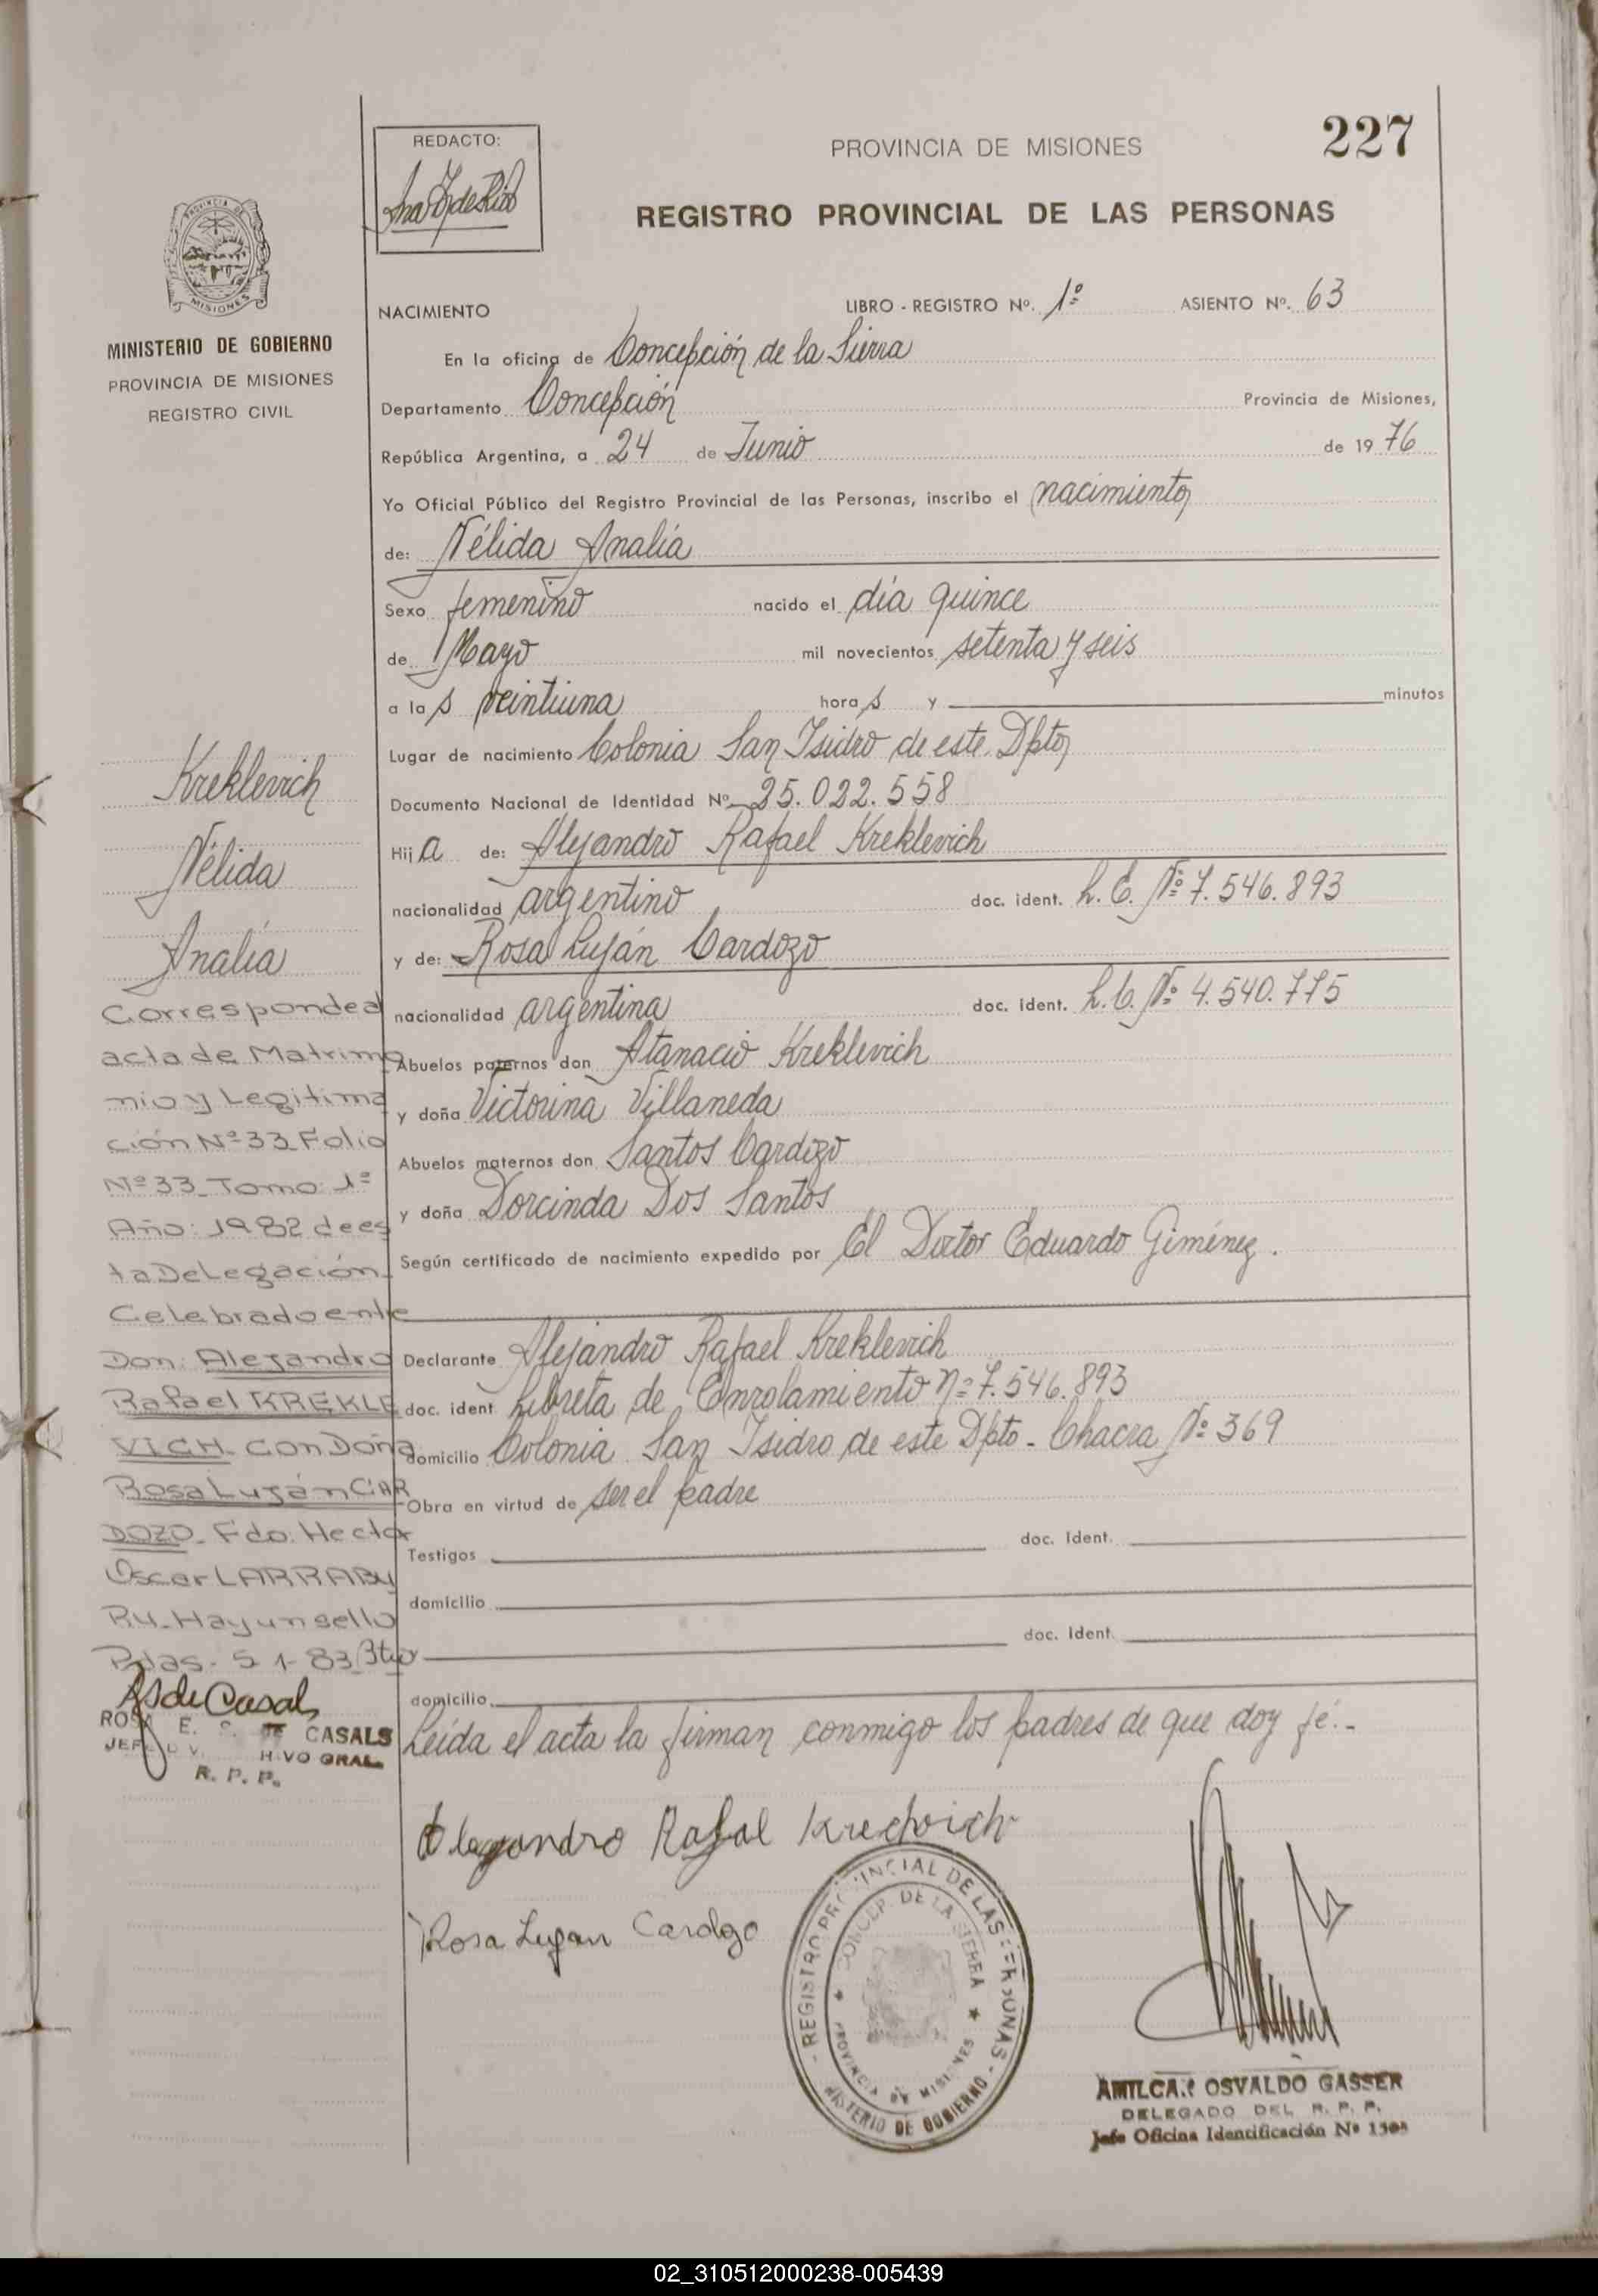 REDACTO:
PROVINCIA DE MISIONES
227
REGISTRO PROVINCIAL DE LAS PERSONAS
PROVINCIA DE
MISIONES
MINISTERIO DE GOBIERNO
PROVINCIA DE MISIONES
REGISTRO CIVIL
NACIMIENTO LIBRO - REGISTRO Nº. 1º ASIENTO Nº. 63
En la oficina de Concepción de la Sierra
Departamento Concepción Provincia de Misiones,
República Argentina, a 24 de Junio de 19 76
Yo Oficial Público del Registro Provincial de las Personas, inscribo el nacimiento
de: Nélida Analía
Sexo femenino nacido el día quince
de Mayo mil novecientos setenta y seis
a la s veintiuna hora s y minutos
Lugar de nacimiento Colonia San Isidro de este Dpto
Documento Nacional de Identidad Nº 25.022.558
Hij a de: Alejandro Rafael Kreklevich
nacionalidad argentino doc. ident. L.E. Nº 7.546.893
y de: Rosa Luján Cardozo
nacionalidad argentina doc. ident. L.C. Nº 4.540.775
Abuelos paternos don Atanacio Kreklevich
y doña Victorina Villaneda
Abuelos maternos don Santos Cardozo
y doña Dorcinda Dos Santos
Según certificado de nacimiento expedido por El Doctor Eduardo Giménez.
Declarante Alejandro Rafael Kreklevich
doc. ident Libreta de Enrolamiento Nº 7.546.893
domicilio Colonia San Isidro de este Dpto - Chacra Nº 369
Obra en virtud de ser el padre
Testigos doc. Ident.
domicilio
doc. Ident.
domicilio
Leída el acta la firman conmigo los padres de que doy fé.-
Kreklevich
Nélida
Analía
Corresponde al
acta de Matrimo
nio y Legitima
ción Nº 33 Folio
Nº 33 Tomo: 1º
Año: 1982 de es
ta Delegación
Celebrado entre
Don: Alejandro
Rafael KREKLE
VICH con Doña
Rosa Luján CAR
DOZO. Fdo. Hector
Oscar LARRABU
RU. Hay un sello
Pdas. 5-1-83
ROSA E. DE CASALS
R. P. P.
Rosa Lujan Cardozo
REGISTRO PROVINCIAL DE LAS PERSONAS
MINISTERIO DE GOBIERNO
CONCEP. DE LA SIERRA
PROVINCIA DE MISIONES
AMILCAR OSVALDO GASSER
DELEGADO DEL R. P. P.
Jefe Oficina Identificación Nº
02_310512000238-005439